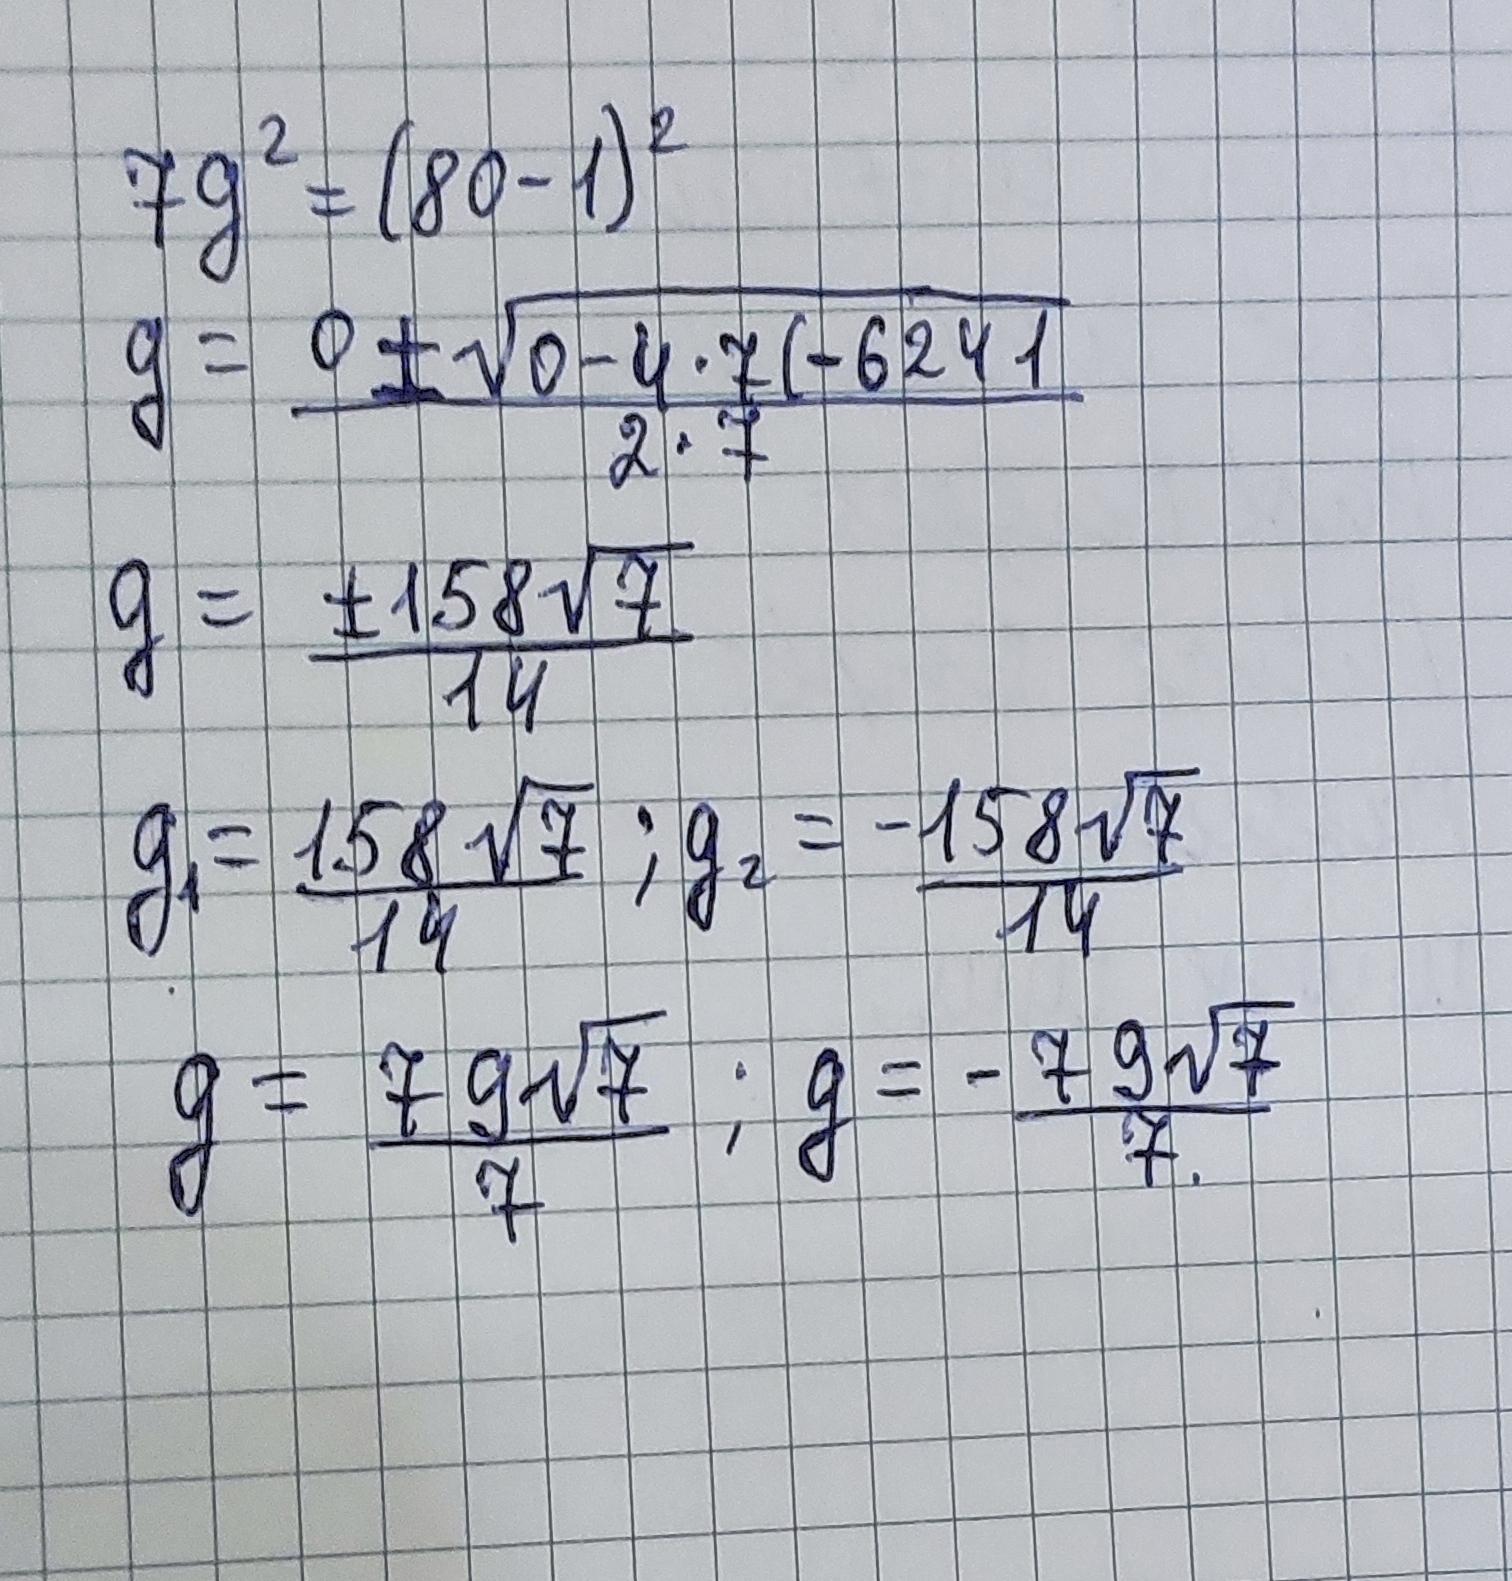 7g² = (80-1)²
g = (0 ± √(0-4·7(-6241))/(2·7)
g = (±158√7)/14
g₁ = (158√7)/14 ; g₂ = -(158√7)/14
g = (79√7)/7 ; g = -(79√7)/7.